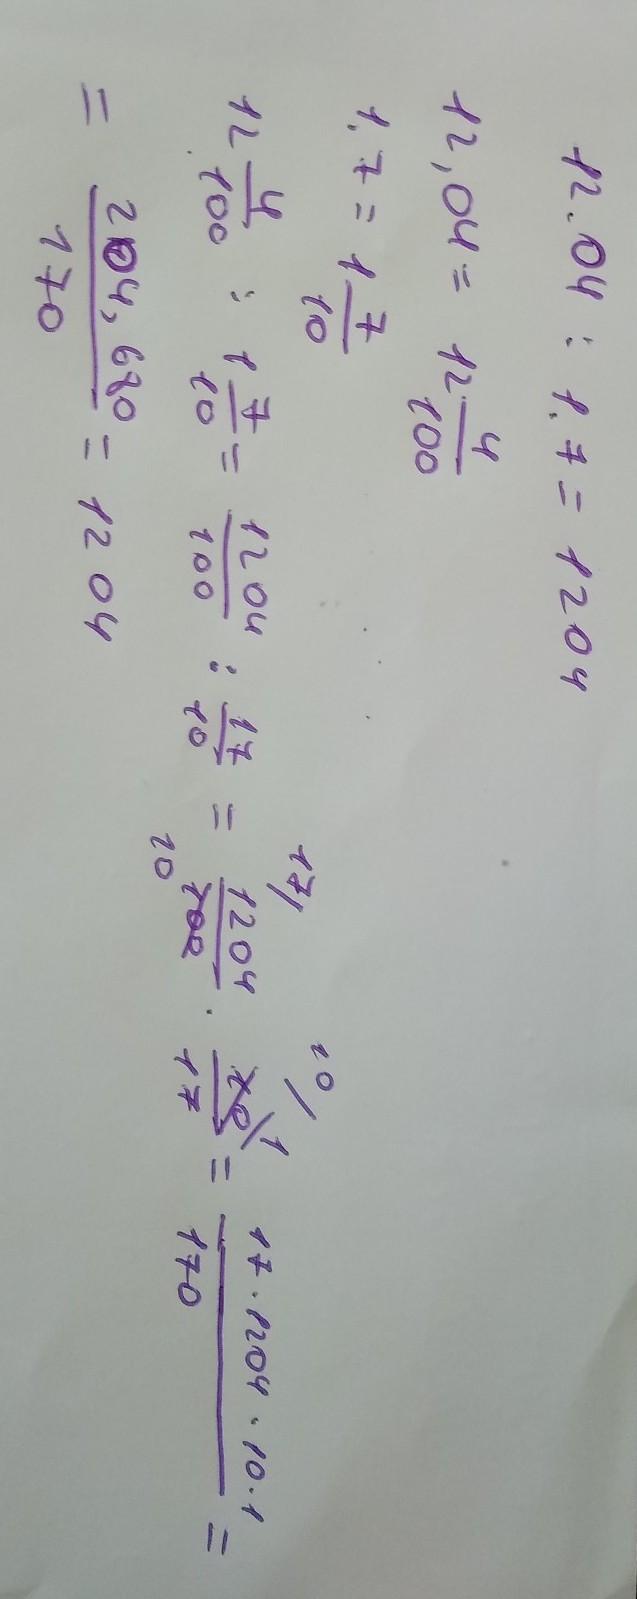 12.04 : 1.7 = 1204
12,04 = 12 4/100
1.7 = 1 7/10
12 4/100 : 1 7/10 = 1204/100 : 17/10 = 17/ 1204/100 10 · 10/ 10/17 1 = 17 · 1204 · 10 · 1/170 =
= 204,680/170 = 1204